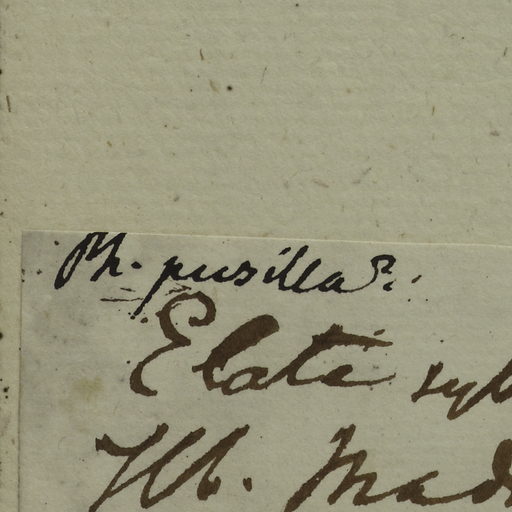 Ph. pusilla?.
Elate syl
Hb. Mad